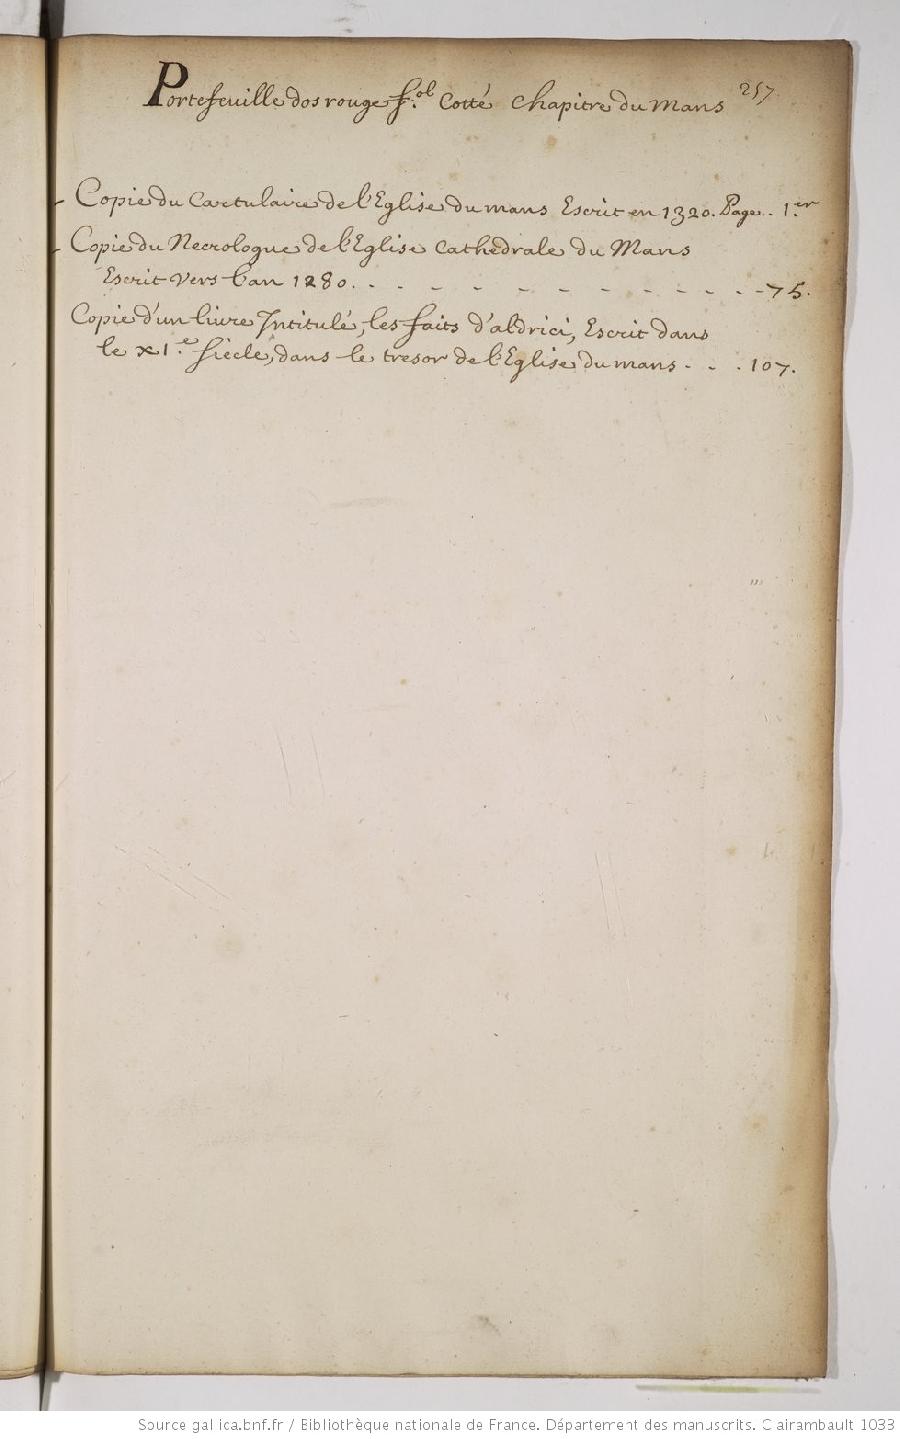 257
Portefeuille dos rouge f.ol Cotté Chapitre du Mans
Copie du Cartulaire de l'Eglise du mans Escrit en 1320. Page . . 1.er
Copie du Necrologue de l'Eglise Cathedrale du Mans
Escrit vers l'an 1280. . - - - - - - - - - - - 75.
Copie d'un livre Intitulé, les faits d'aldrici, Escrit dans
le x1.e siecle, dans le tresor de l'Eglise du mans - . . . 107.
Source gallica.bnf.fr / Bibliothèque nationale de France. Département des manuscrits. Clairambault 1033